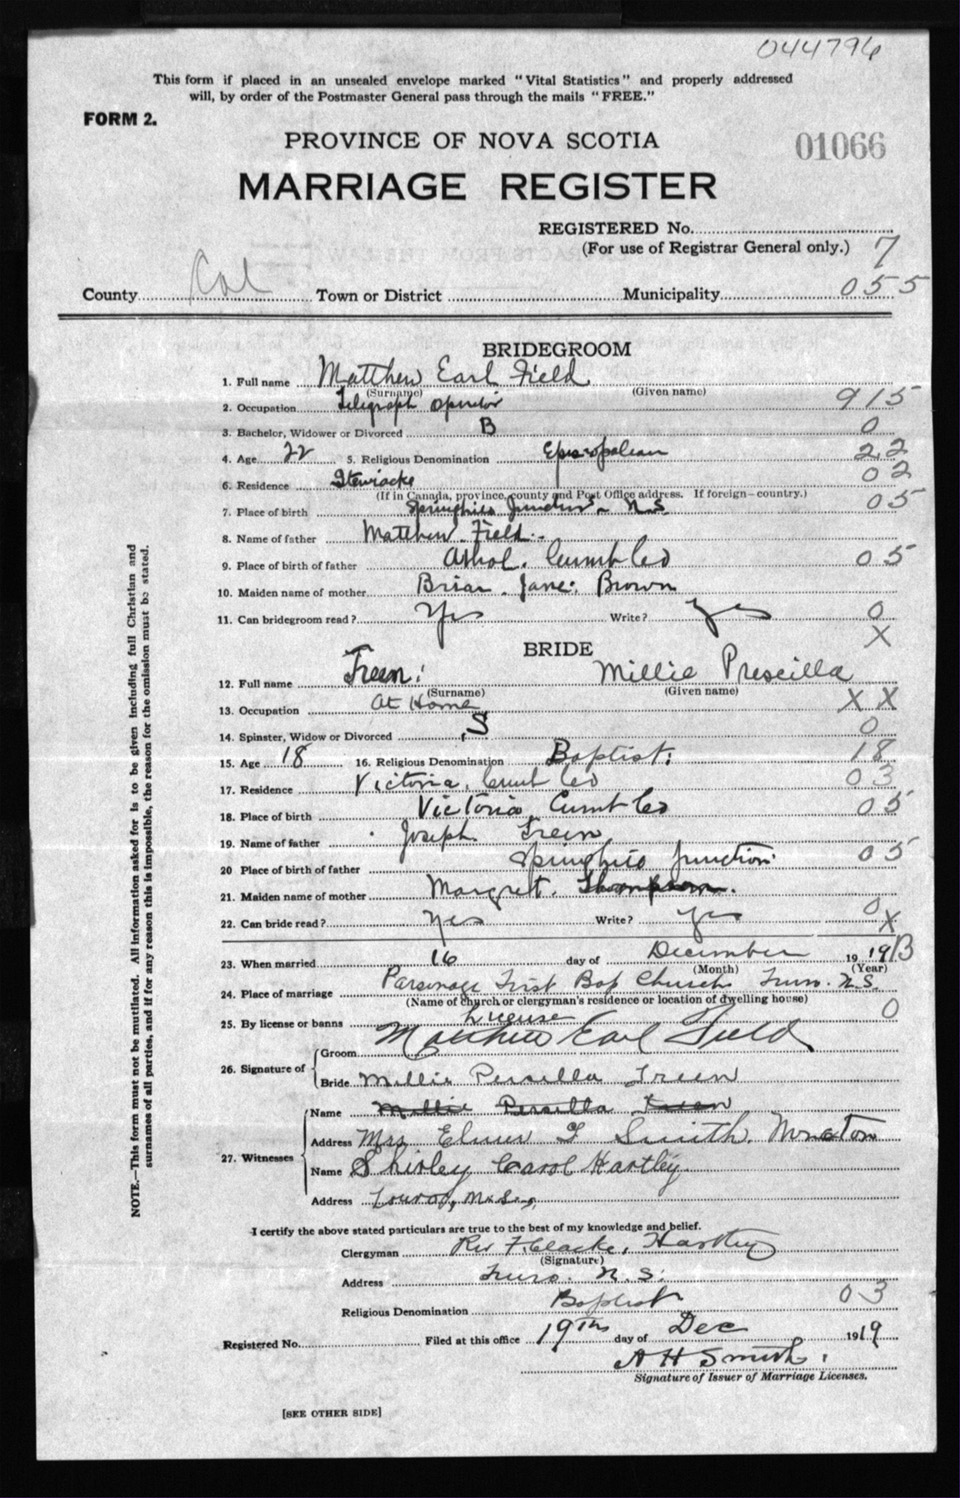 044796
This form if placed in an unsealed envelope marked "Vital Statistics" and properly addressed
will, by order of the Postmaster General pass through the mails "FREE."
FORM 2.
PROVINCE OF NOVA SCOTIA
01066
MARRIAGE REGISTER
REGISTERED No.
(For use of Registrar General only.) 7
County Col Town or District Municipality 055
BRIDEGROOM
1. Full name Matthew Earl Field
(Surname) (Given name)
2. Occupation Telegraph Operator 915
3. Bachelor, Widower or Divorced B 0
4. Age 22 5. Religious Denomination Episcopalian 22
6. Residence Stewiacke 02
(If in Canada, province, county and Post Office address. If foreign—country.)
7. Place of birth Springhill Junction N.S 05
8. Name of father Matthew Field
9. Place of birth of father Athol. Cumb Co 05
10. Maiden name of mother Jane Brown
11. Can bridegroom read? Yes Write? Yes 0
X
BRIDE
12. Full name Treen Millie Prescilla
(Surname) (Given name)
13. Occupation At Home X X
14. Spinster, Widow or Divorced S 0
15. Age 18 16. Religious Denomination Baptist 18
17. Residence Victoria, Cumb Co 03
18. Place of birth Victoria Cumb Co 05
19. Name of father Joseph Treen
20 Place of birth of father Springhill Junction 05
21. Maiden name of mother Margret. Thompson.
22. Can bride read? Yes Write? Yes 0
X
23. When married 16 day of December 19 19 13
(Month) (Year)
24. Place of marriage Parsonage First Bap Church Truro. N.S.
(Name of church or clergyman's residence or location of dwelling house)
25. By license or banns License 0
26. Signature of Groom Matthew Earl Field
Bride Millie Persilla Treen
27. Witnesses Name Millie Persilla Treen
Address Mrs Elmer F Smith. Moncton
Name Shirley Carol Hartley
Address Truro, N.S.
I certify the above stated particulars are true to the best of my knowledge and belief.
Clergyman Rev F. Clarke, Hartley
(Signature)
Address Truro. N.S.
Religious Denomination Baptist 03
Registered No. Filed at this office 19th day of Dec 1919
A H Smith
Signature of Issuer of Marriage Licenses.
[SEE OTHER SIDE]
NOTE.—This form must not be mutilated. All information asked for is to be given including full Christian and
surnames of all parties, and if for any reason this is impossible, the reason for the omission must be stated.